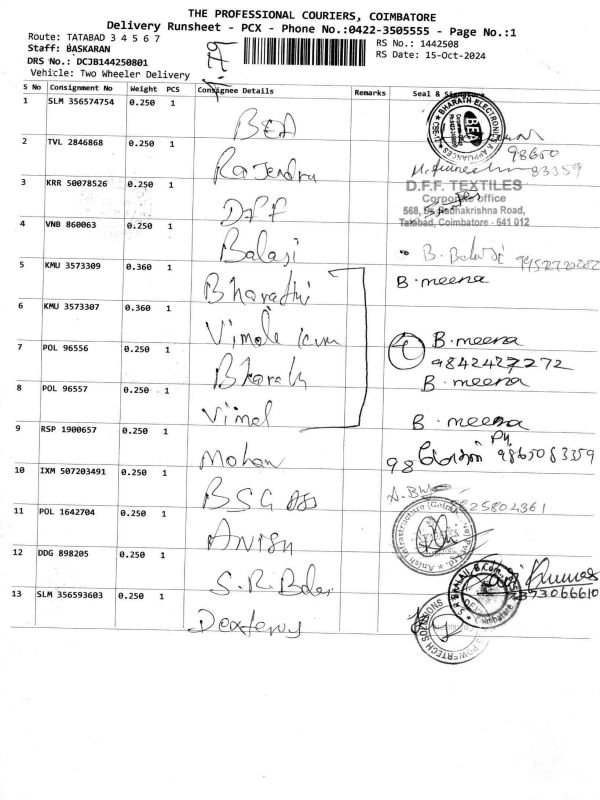 THE PROFESSIONAL COURIERS, COIMBATORE
Delivery Runsheet - PCX - Phone No.:0422-3505555 - Page No.:1
Route: TATABAD 3 4 5 6 7
RS No.: 1442508
Staff: BASKARAN
RS Date: 15-Oct-2024
DRS No.: DCJB144250801
Vehicle: Two Wheeler Delivery
S No Consignment No Weight PCS Consignee Details Remarks Seal & Signature
1 SLM 356574754 0.250 1 BEA
BHARATH ELECTRONICS & APPLIANCES
BEA
98650
2 TVL 2846868 0.250 1 Rajendra
83359
3 KRR 50078526 0.250 1 DFF
D.F.F. TEXTILES
Corporate office
568, Dr. Radhakrishna Road,
Tatabad, Coimbatore - 641 012
4 VNB 860063 0.250 1 Balaji B. Balaji
5 KMU 3573309 0.360 1 Bharathi B. meena
6 KMU 3573307 0.360 1 Vimale kum 4 B. meena
9842427272
7 POL 96556 0.250 1 Bharath B. meena
8 POL 96557 0.250 1 Vimal B. meena
9 RSP 1900657 0.250 1 Mohan Ph 9865083359
98
10 IXM 507203491 0.250 1 BSG
11 POL 1642704 0.250 1 Anish
12 DDG 898205 0.250 1 S.R. Balaji
13 SLM 356593603 0.250 1 Dexterous
POWERTECH SOLUTIONS